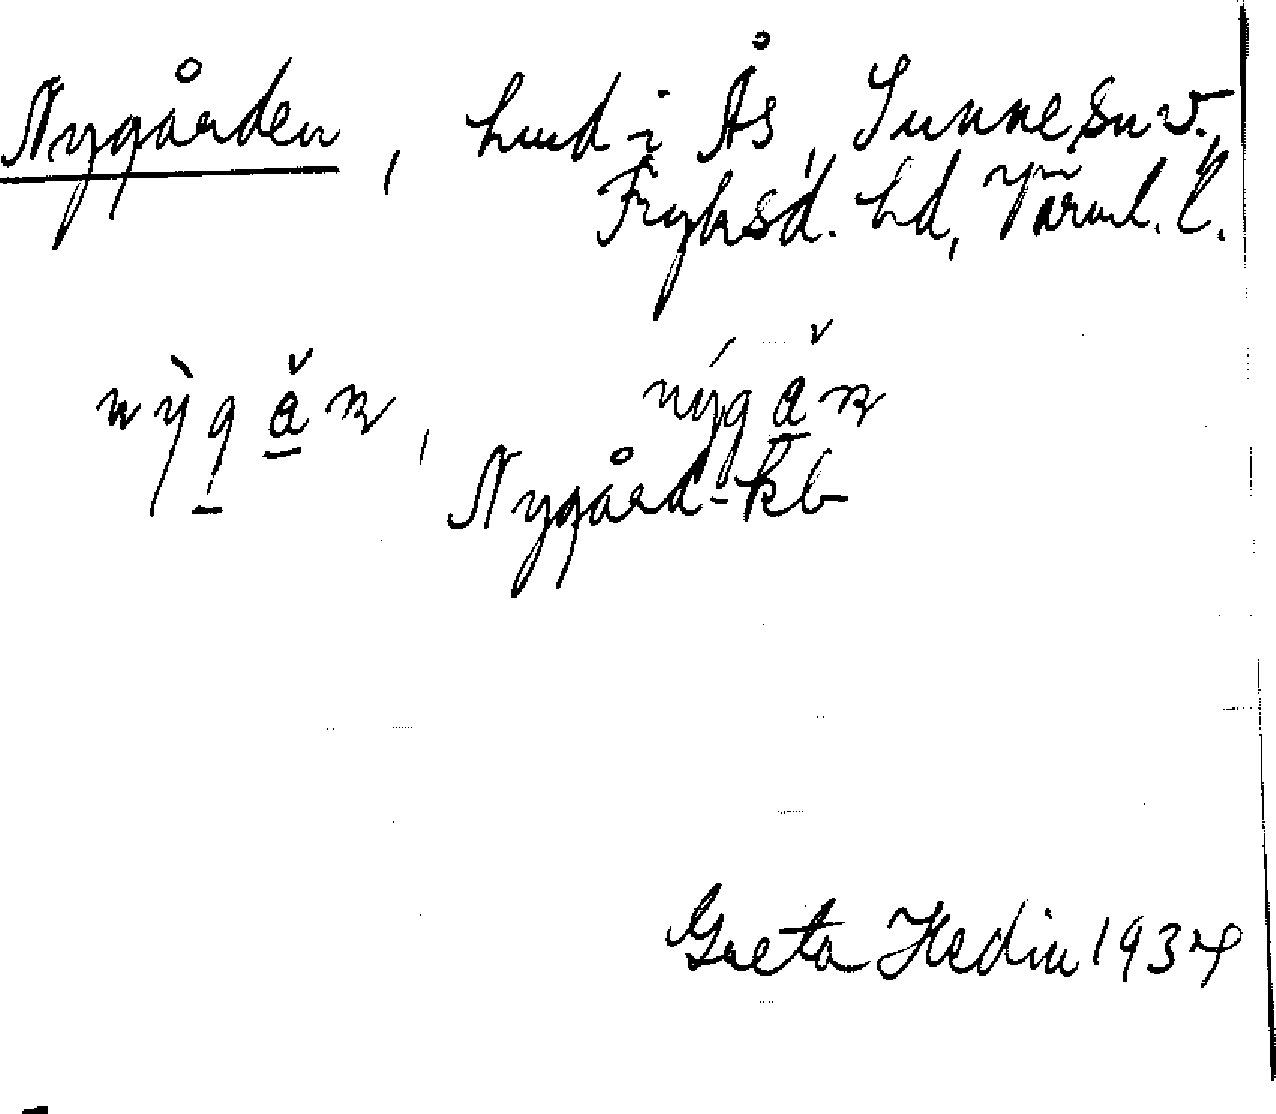 Nygården, hmd i Ås, Sunne sn v.,
Fryksd. hd, Värml. l.
Nygård - kb
Greta Hedin 1934